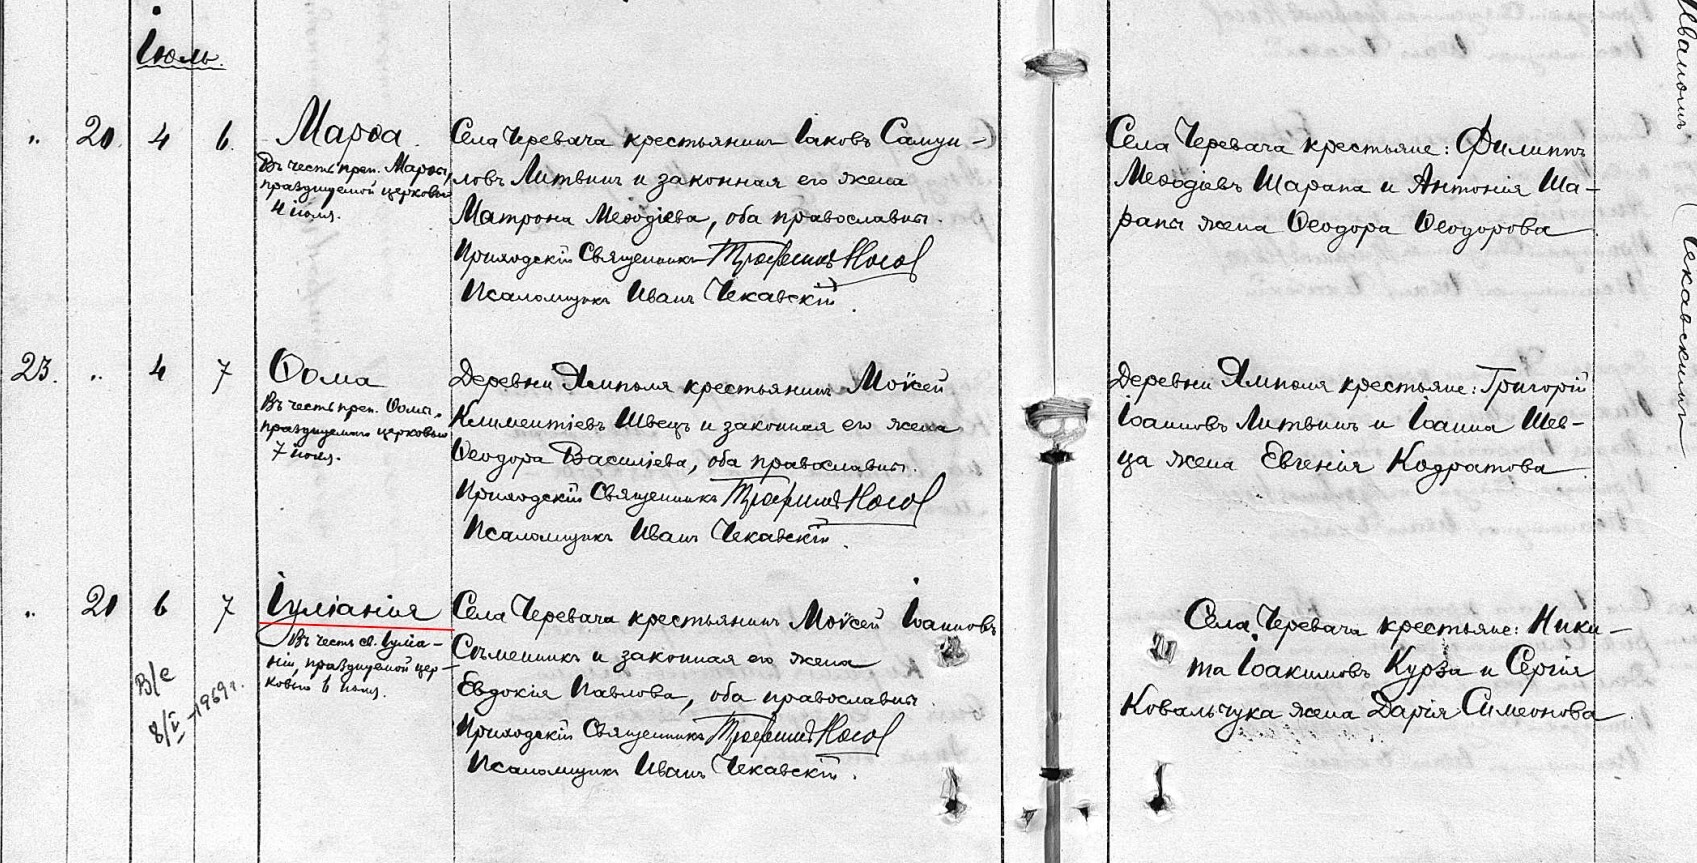 Іюль.
„ 20 4 6. Марѳа.
Въ честь преп. Марѳы,
празднуемой церковью
4 іюля.
Села Черевача крестьянинъ Іаковъ Самуи-
ловъ Литвинъ и законная его жена
Матрона Меѳодіева, оба православны.
Приходскій Священникъ Трофимъ Носов
Псаломщикъ Иванъ Чекавскій.
Села Черевача крестьяне: Филиппъ
Меѳодіевъ Шарапа и Антонія Ша-
рапы жена Ѳеодора Ѳеодорова
23. „ 4 7 Ѳома
Въ честь преп. Ѳомы,
празднуемаго церковью
7 іюля.
Деревни Ямполя крестьянинъ Моѵсей
Климентіевъ Швецъ и законная его жена
Ѳеодора Василіева, оба православны.
Приходскій Священникъ Трофимъ Носов
Псаломщикъ Иванъ Чекавскій.
Деревни Ямполя крестьяне: Григорій
Іоанновъ Литвинъ и Іоанна Шев-
ца жена Евгенія Кодратова
„ 20 6 7 Іуліанія
Въ честь св. Іуліа-
ніи, празднуемой цер-
ковью 6 іюля.
В/е
8/I - 1969 г.
Села Черевача крестьянинъ Моѵсей Іоанновъ
Съменникъ и законная его жена
Евдокія Павлова, оба православны.
Приходскій Священникъ Трофимъ Носов
Псаломщикъ Иванъ Чекавскій.
Села Черевача крестьяне: Ники-
та Іоакимовъ Курза и Сергія
Ковальчука жена Дарія Симеонова.
Чекавскій